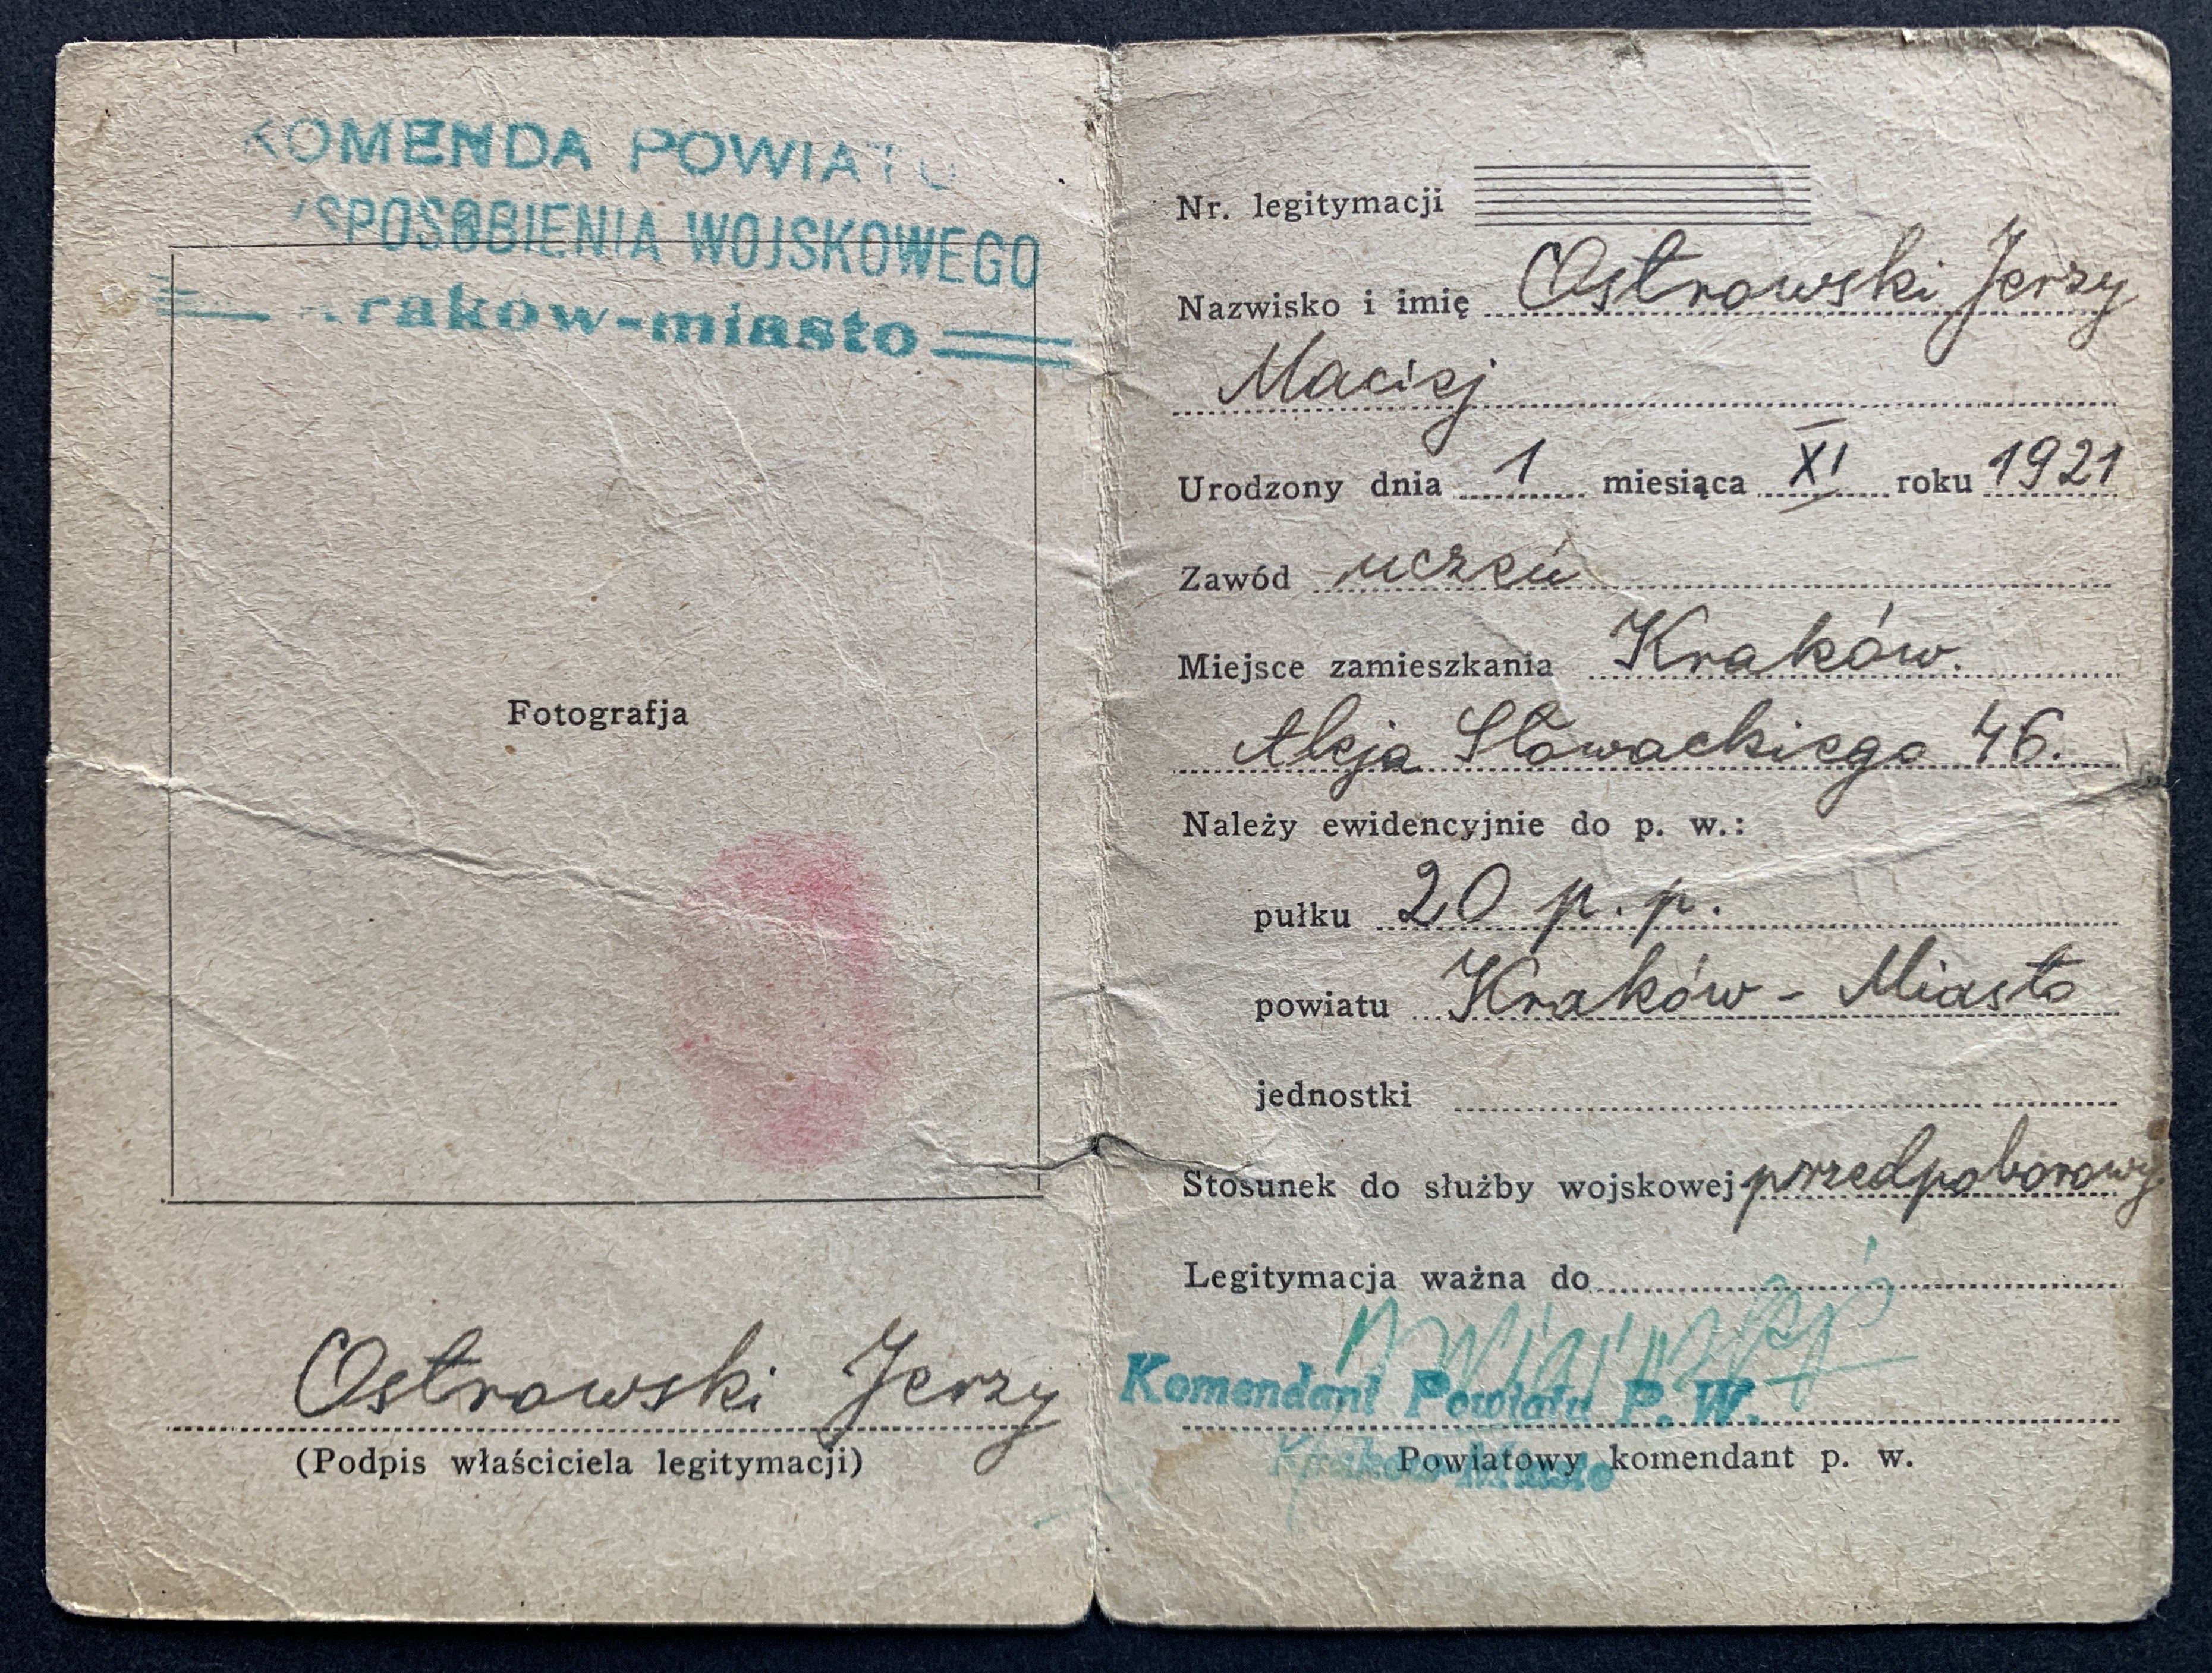 KOMENDA POWIATU
SPOSOBIENIA WOJSKOWEGO
rakow-miasto
Fotografja
Ostrowski Jerzy
(Podpis właściciela legitymacji)
Nr. legitymacji
Nazwisko i imię Ostrowski Jerzy
Maciej
Urodzony dnia 1 miesiąca XI roku 1921
Zawód uczeń
Miejsce zamieszkania Kraków.
Aleja Słowackiego 46.
Należy ewidencyjnie do p. w.:
pułku 20 p. p.
powiatu Kraków - Miasto
jednostki
Stosunek do służby wojskowej przedpoborowy
Legitymacja ważna do
Komendant Powiatu P. W.
Powiatowy komendant p. w.